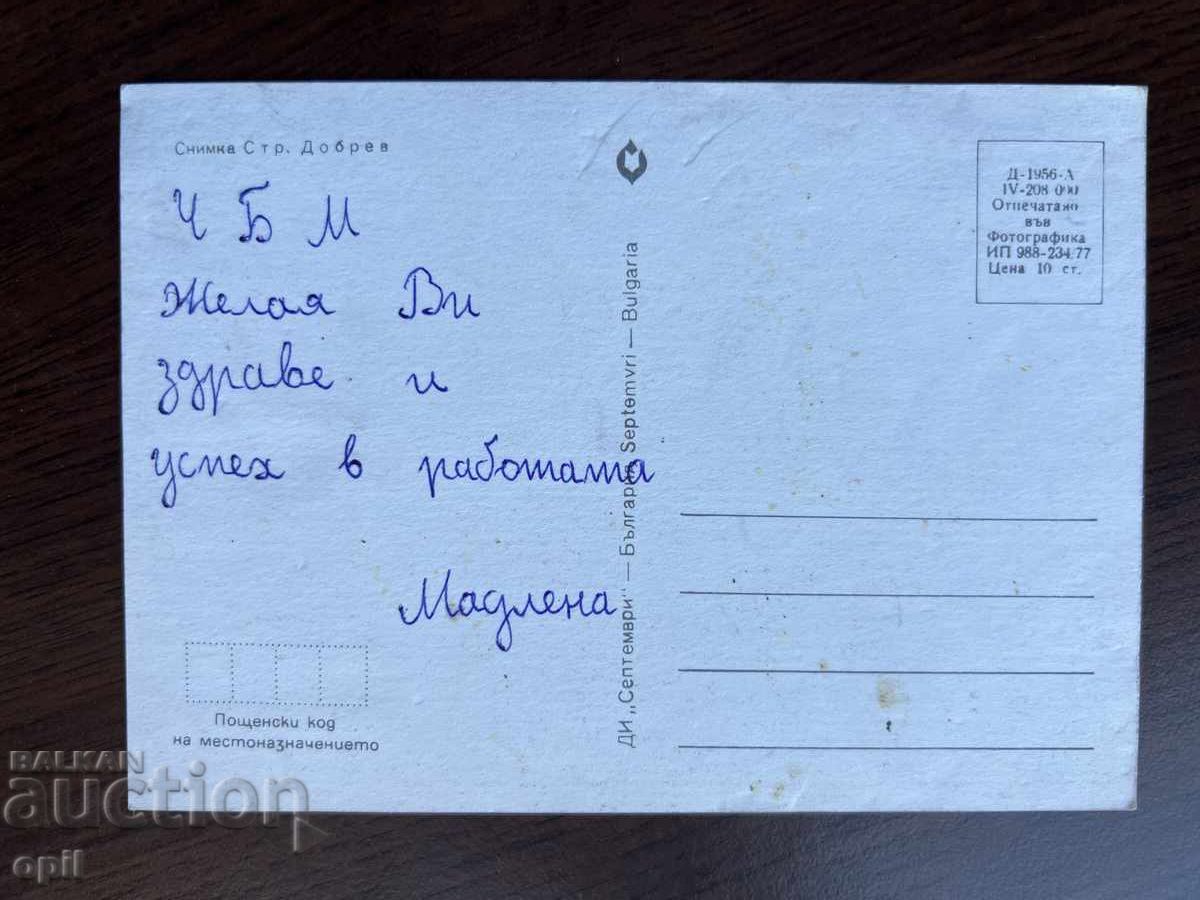 Снимка Стр. Добрев
Ч Б М
Желая Ви
здраве и
успех в работата
Мадлена
Пощенски код
на местоназначението
ДИ „Септември" — България Septemvri — Bulgaria
Д-1956-А
IV-208 000
Отпечатано
във
Фотографика
ИП 988-234/77
Цена 10 ст.
BALKAN
auction
opil